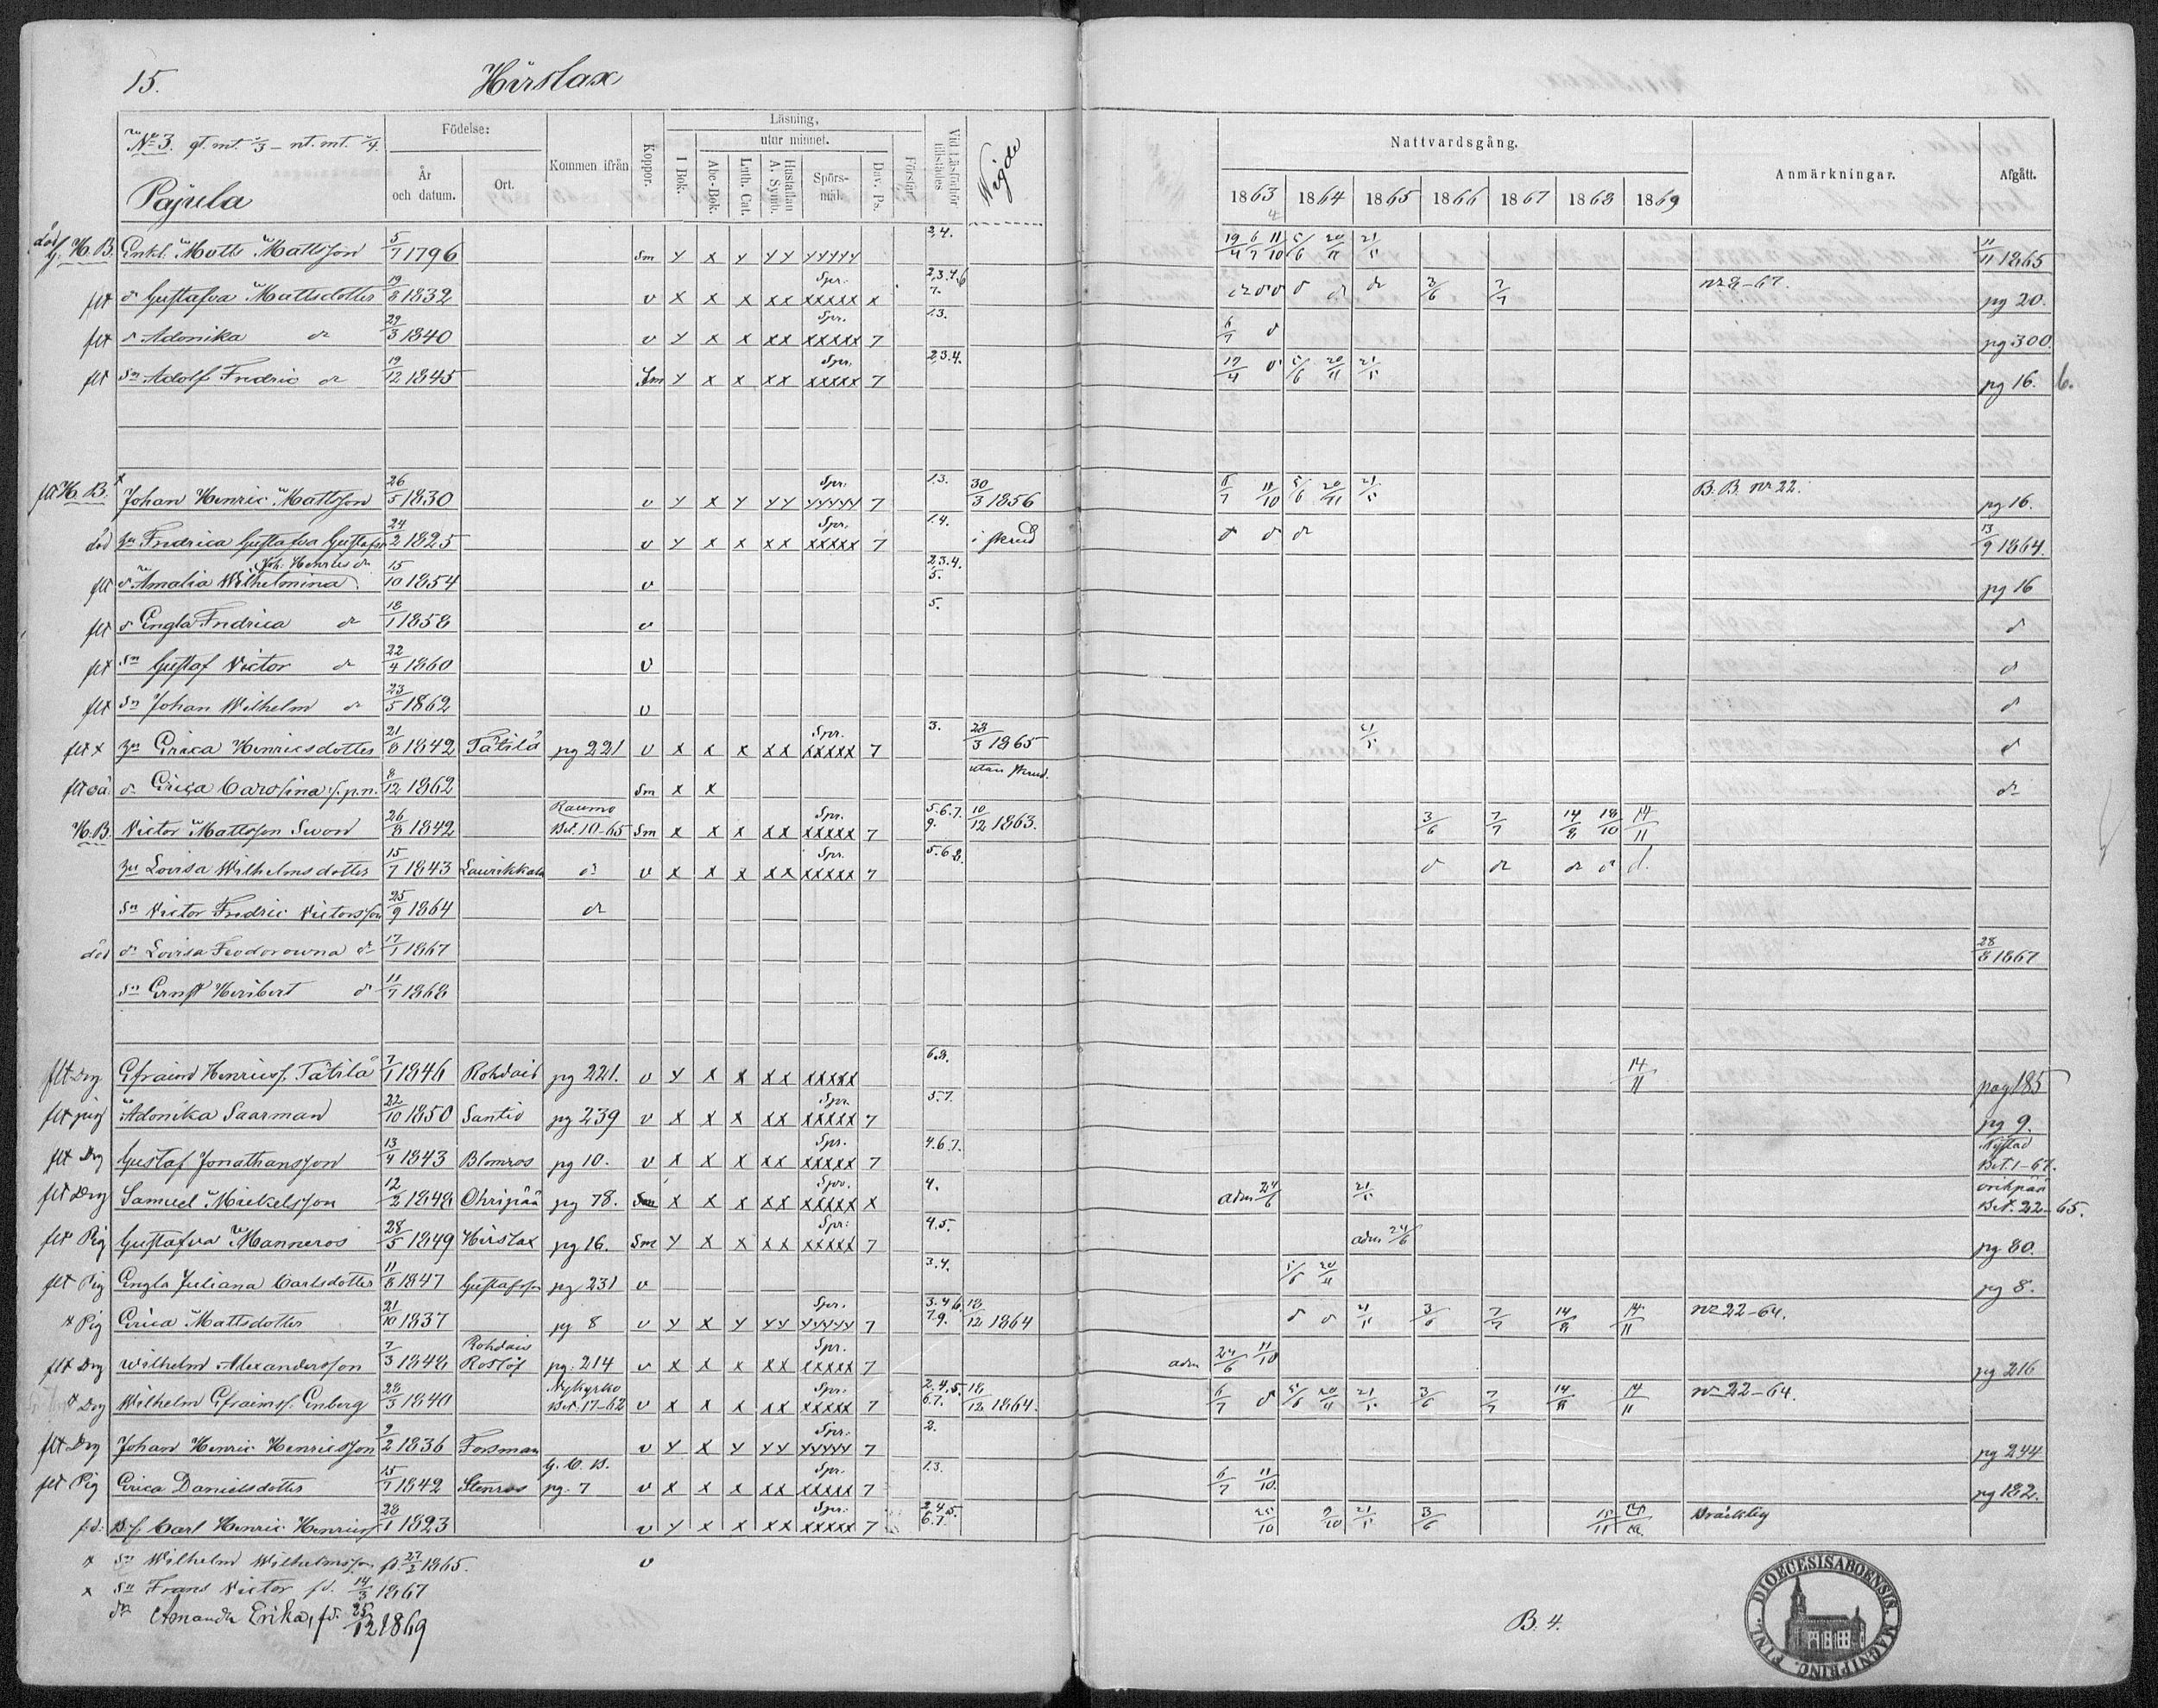 15. Hirslax
No 3. gt. mt. 2/3 – nt. mt. 2/4.
Pajula
Födelse: År och datum. Ort. Kommen ifrån Koppor. Läsning, I Bok. utur minnet. Abc-Bok. Luth. Cat. Hustaflan A. Symb. Spörs-mål. Dav. Ps. Förstår. Vid Läsförhör tillstädes Vigde
Nattvardsgång. 1863 1864 1865 1866 1867 1868 1869 Anmärkningar. Afgått.
död H. B. Enkl. Matts Mattsson 5/7 1796 Sm 2,4. 19/4 6/7 11/10 5/6 20/11 21/5 11/11 1865
flt dr Gustafva Mattsdotter 19/8 1832 v x x x xx xxxxx x Spr. 2,3,4,6 7. 3/6 7/7 nr 8–67. pg 20.
flt dr Adonika dr 29/3 1840 v y x x xx xxxxx 7 Spr. 1.3. 6/7 pg 300.
flt Sn Adolf Fredric dr 19/12 1845 Sm y x x xx xxxxx 7 Spr. 2,3.4. 19/4 5/6 20/11 21/5 pg 16. 6.
H. B. Johan Henric Mattsson 26/5 1830 v y x y yy yyyyy 7 Spr. 1.3. 30/3 1856 6/7 11/10 5/6 20/11 21/5 B. B. nr 22. pg 16.
död hu Fredrica Gustafva Gustafsdr 24/2 1825 v y x x xx xxxxx 7 Spr. 1.4. i skrud 13/9 1864.
flt dr Amalia Wilhelmina Joh. Henrics dr 15/10 1854 v 2,3.4. 5. pg 16
flt dr Engla Fredrica dr 18/1 1858 v 5. dr
flt Sn Gustaf Victor dr 22/4 1860 v dr
flt Sn Johan Wilhelm dr 23/5 1862 v dr
flt x hu Erica Henricsdotter 21/8 1842 Tätilä pg 221 v x x x xx xxxxx 7 Spr. 3. 28/3 1865 utan skrud. 21/5 dr
dr Erica Carolina 8/12 1862 Sm x x dr
H. B. Victor Mattsson Swon 26/8 1842 Raumo Bet. 10–65 Sm x x x xx xxxxx 7 Spr. 5.6.7. 9. 10/12 1863. 3/6 7/7 14/8 18/10 14/11
hu Lovisa Wilhelmsdotter 15/7 1843 Laurikkala dr v x x x xx xxxxx 7 Spr. 5.6 8.
Sn Victor Fredric Victorsson 25/9 1864 dr
död dr Lovisa Feodorowna dr 17/1 1867 28/8 1867
Sn Ernst Heribert dr 11/7 1868
flt Drg Efraim Henricss. Tätilä 7/1 1846 Rohdais pg 221. v y x x xx xxxxx 6.8. 14/11 pag 185
flt pig Adonika Saarman 22/10 1850 Santio pg 239 v x x x xx xxxxx 7 Spr. 5.7. pg 9.
flt Drg Gustaf Jonathansson 13/4 1843 Blomros pg 10. v x x x xx xxxxx 7 Spr. 4.6.7. Nystad Bet. 1–67.
flt Drg Samuel Mickelsson 12/2 1848 Ohripää pg 78. Sm x x x xx xxxxx x Spr. 4. adm 24/6 21/5 oripää Bet. 22–65.
flt Pig Gustafva Manneros 28/5 1849 Hirslax pg 16. Sm y x x xx xxxxx 7 Spr: 4.5. adm 24/6 pg 80.
flt Pig Engla Juliana Carlsdotter 11/8 1847 Gustafsson pg 231 v 3.4. 5/6 20/11 pg 8.
x Pig Erica Mattsdotter 21/10 1837 pg 8 v y x y yy yyyyy 7 Spr. 3.4 6. 7.9. 18/12 1864 21/5 3/6 7/7 14/8 14/11 nr 22–64.
flt Drg Wilhelm Alexandersson 7/3 1848 Rohdais Roslöf pg. 214 v x x x xx xxxxx 7 Spr. adm 24/6 11/10 pg 216
x Drg Wilhelm Efraimss. Enberg 28/3 1840 Nykyrko Bet. 17–62 v x x x xx xxxxx 7 Spr. 2.4.5. 6.7. 18/12 1864. 6/7 5/6 20/11 21/5 3/6 7/7 14/8 14/11 nr 22–64.
flt Drg Johan Henric Henricsson 9/2 1836 Forsman v y x y yy yyyyy 7 Spr: 2. pg 244
flt Pig Erica Danielsdotter 15/7 1842 Stenros pg. 7 v x x x xx xxxxx 7 Spr. 1.3. 6/7 11/10. pg 182.
Carl Henric Henricss. 28/1 1823 v y x x xx xxxxx 7 Spr: 2.4.5. 6.7. 25/10 9/10 21/5 3/6 15/11 Bräcklig
x Sn Wilhelm Wilhelmsson fd. 27/2 1865. v
x Sn Frans Victor fd. 14/3 1867
dr Amanda Erika, fd. 25/12 1869
B. 4.
DIOECESIS ABOENSIS. MAGNI PRINC. FINL.